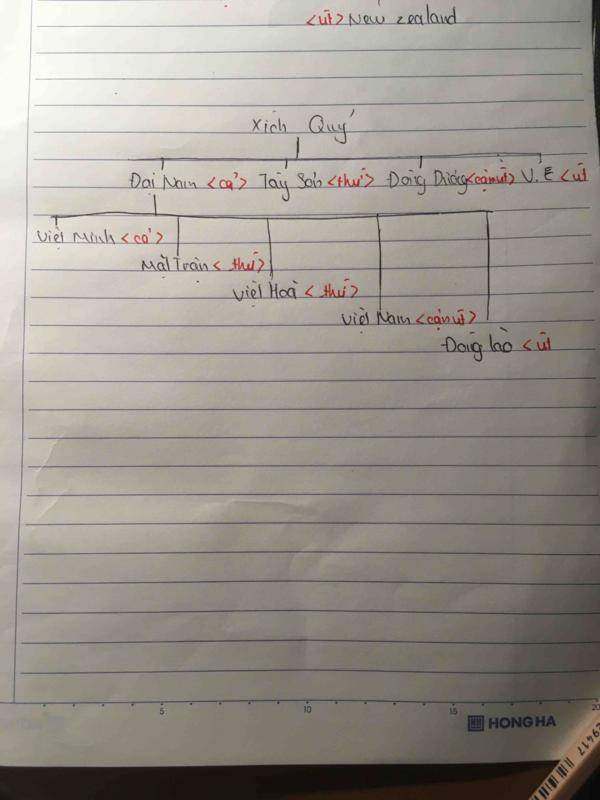 <út> New zealand
Xích Quỷ
Đại Nam <cả> Tây Sơn <thứ> Đông Dương <cận út> V.E <út
Việt Minh <cả>
Mặt Trận < thứ>
Việt Hoà < thứ>
Việt Nam <cận út>
Đông lào < út
5 10 15 20
HONG HA
29417